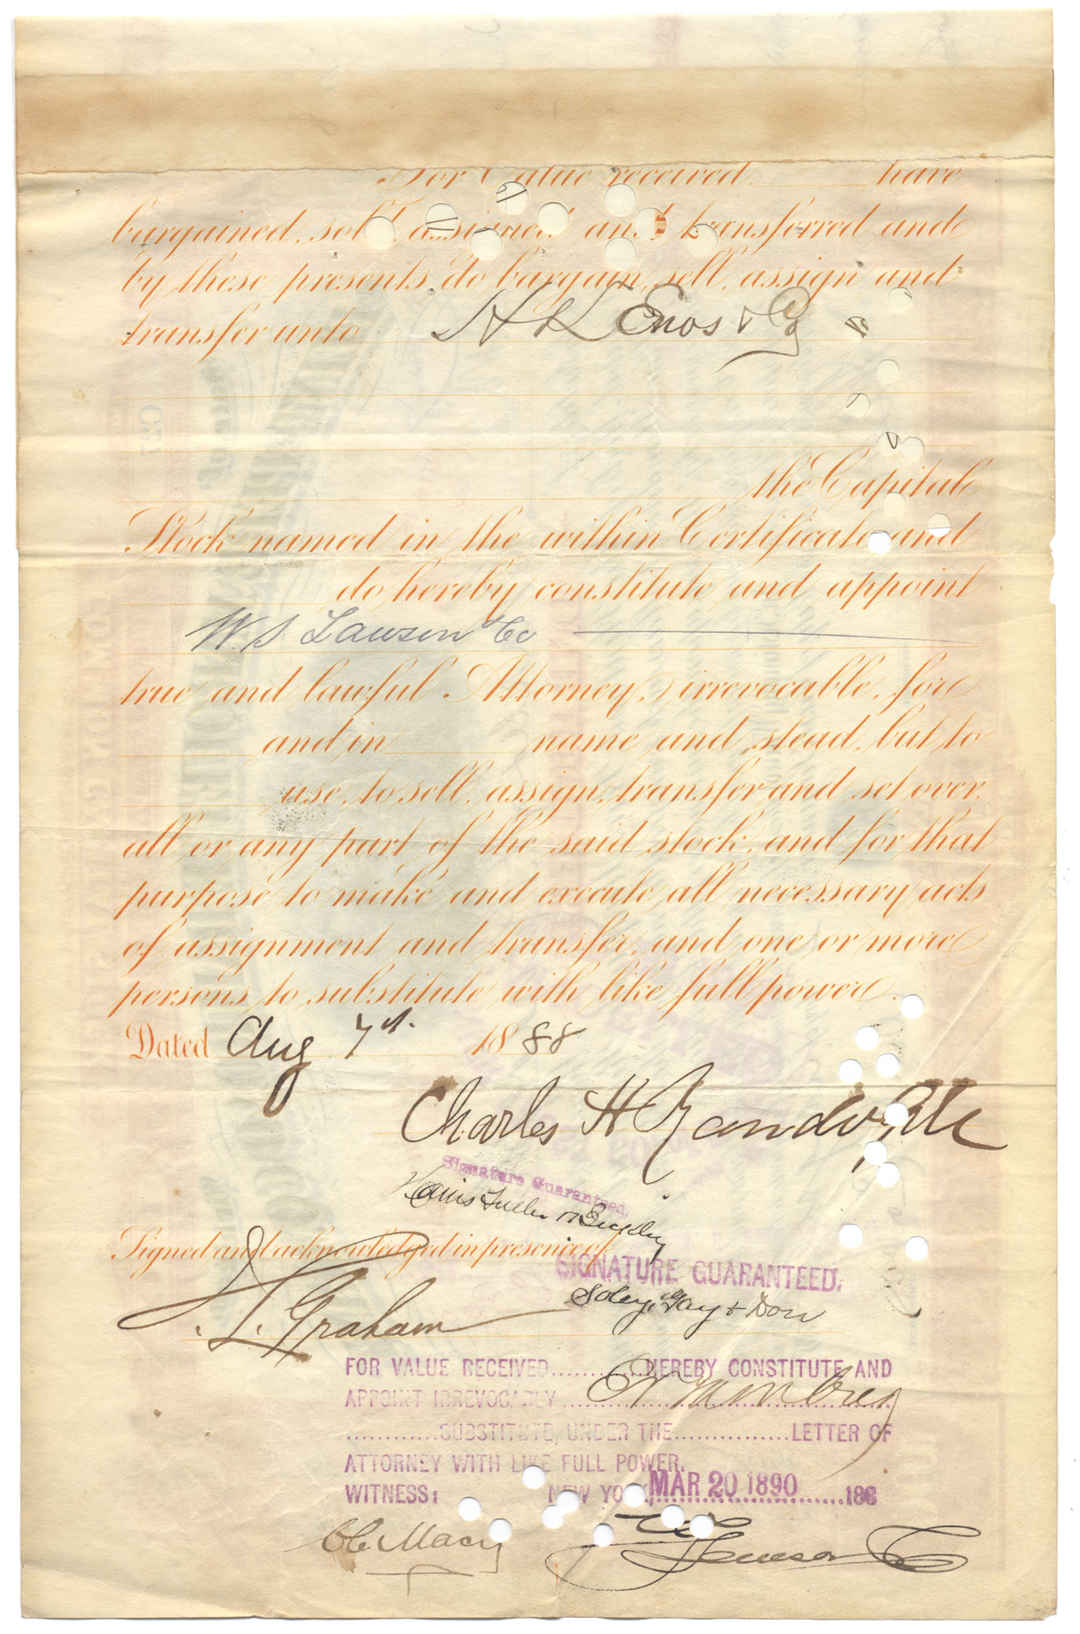 For Value received, have
bargained, sold, assigned and transferred and
by these presents, do bargain, sell, assign and
transfer unto H K Enos & Co
the Capital
Stock named in the within Certificate and
do hereby constitute and appoint
W. S Lawson & Co
true and lawful Attorney, irrevocable, for
and in name and stead, but to
use, to sell, assign, transfer and set over,
all or any part of the said stock, and for that
purpose to make and execute all necessary acts
of assignment and transfer, and one or more
persons to substitute with like full power.
Dated Aug 7th 1888
Charles H
Signature Guaranteed.
Signed and acknowledged in presence of
SIGNATURE GUARANTEED.
J. L. Graham
FOR VALUE RECEIVED..........HEREBY CONSTITUTE AND
APPOINT IRREVOCABLY
............SUBSTITUTE, UNDER THE...............LETTER OF
ATTORNEY WITH LIKE FULL POWER.
WITNESS: NEW YORK, MAR 20 1890 188
Macy
Lawson Co